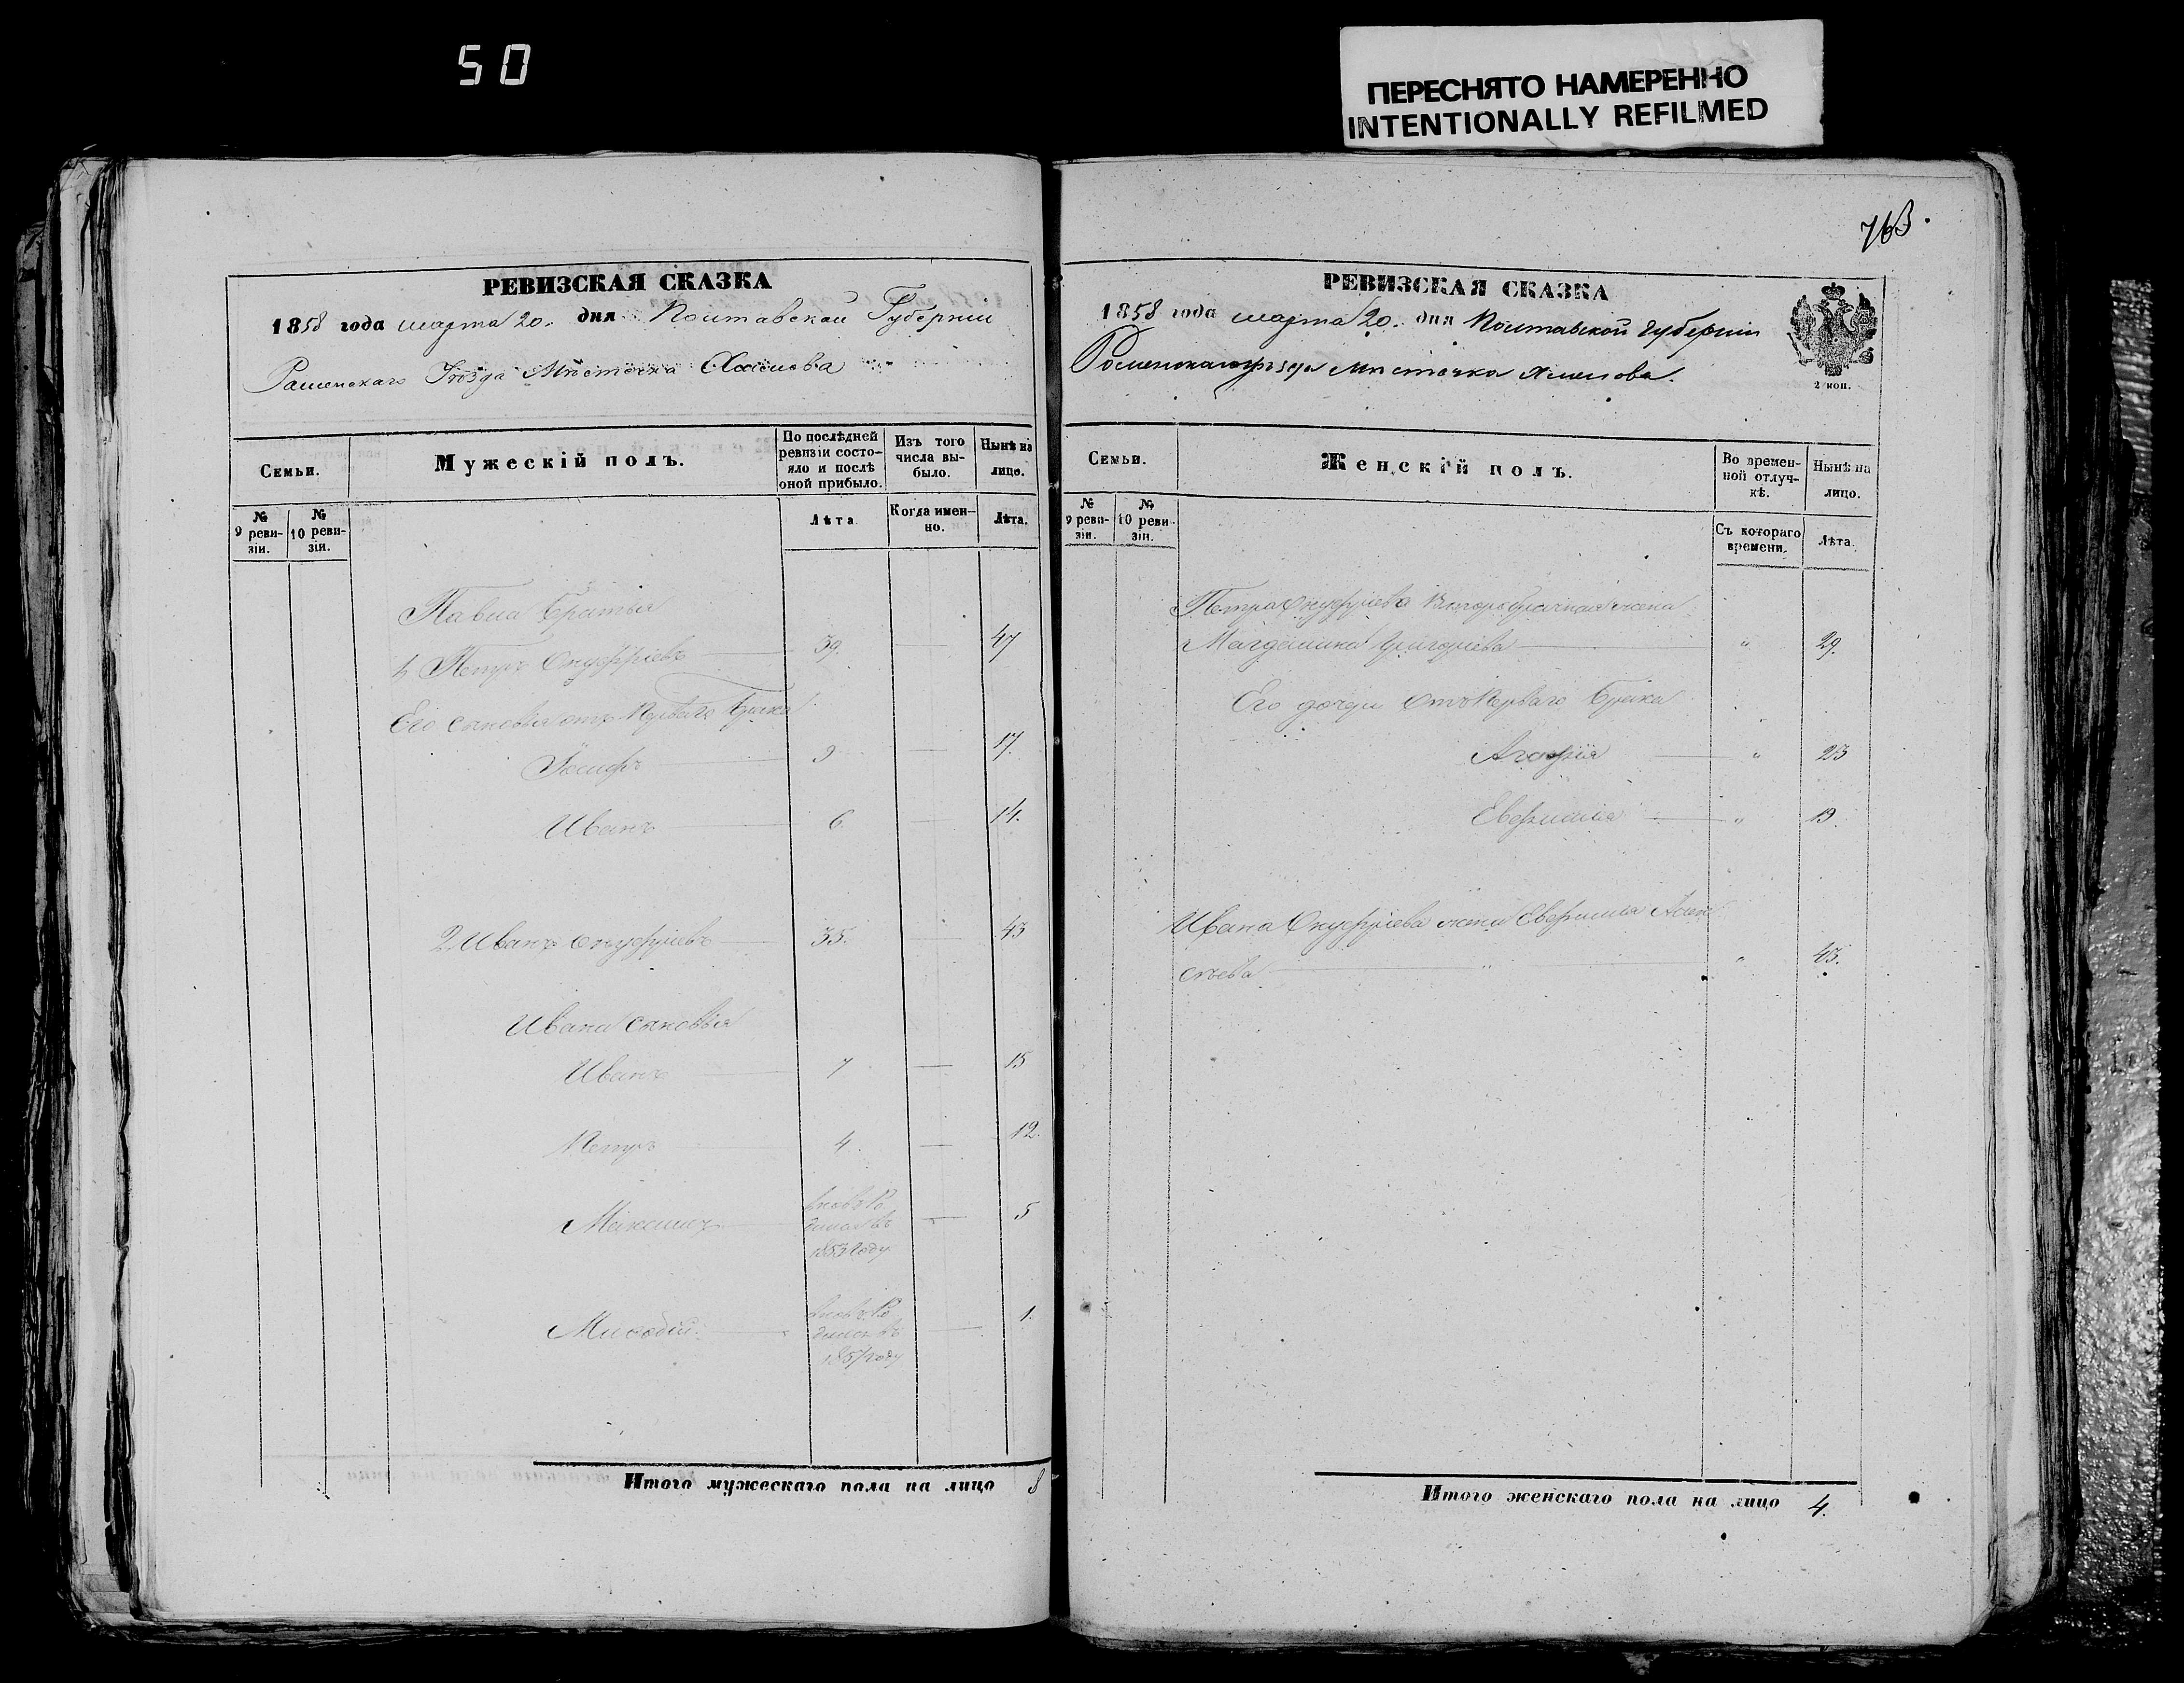 50
ПЕРЕСНЯТО НАМЕРЕННО
INTENTIONALLY REFILMED
763.
РЕВИЗСКАЯ СКАЗКА
1858 года марта 20. дня Полтавской Губерніи
Роменскаго Уѣзда Мѣстечка Хмелова
Семьи.
Мужескій полъ.
По послѣдней ревизіи состояло и послѣ оной прибыло.
Изъ того числа выбыло.
Нынѣ на лицо.
№ 9 ревизіи.
№ 10 ревизіи.
Лѣта
Когда именно.
Лѣта.
Павла братья
1, Петръ Онуфріевъ 39. 47
Его сыновья отъ Перваго брака
Іосифъ 9 17.
Иванъ 6. 14.
2, Иванъ Онуфріевъ 35. 43
Ивана сыновья
Иванъ 7 15
Петръ 4. 12.
Максимъ 5
вновь Ро
дился въ
1853 году
1.
вновь Ро
дился въ
1857 году
Итого мужескаго пола на лицо 8
РЕВИЗСКАЯ СКАЗКА
1858 года марта 20. дня Полтавской губерніи
Роменскаго уѣзда Мѣстечка Хмелова.
2 коп.
Семьи.
Женскій полъ.
Во временной отлучкѣ.
Нынѣ на лицо.
№ 9 ревизіи.
№ 10 ревизіи.
Съ котораго времени.
Лѣта.
Петра Онуфріева Второбрачная жена
Магдалина Григорьева " 29.
Его дочери отъ Перваго брака
Агафія " 23
Евфимія " 19.
Ивана Онуфріева жена Евфимія
" " 43.
Итого женскаго пола на лицо 4.